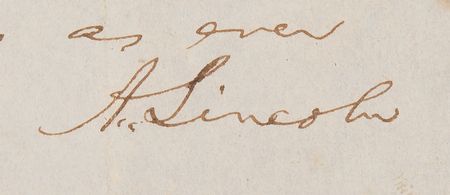 as ever
A. Lincoln